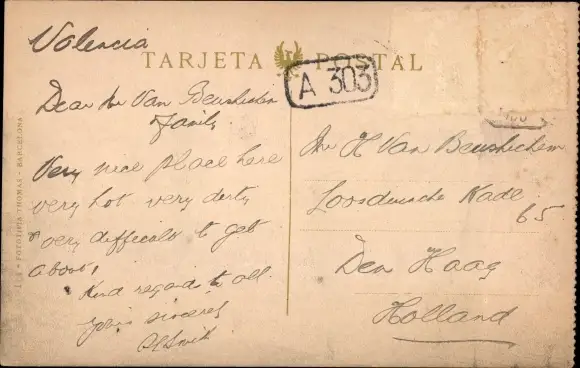 Valencia
TARJETA POSTAL
A 303
Dear Mr Van Beushichem
family
Very nice place here
very hot very derty
& very difficalt to get
about,
Kind regards to all.
yours sincerely
Mr H Van Beushichem
Loosduinsche Kade
65
Den Haag
Holland
FOTOTIPIA THOMAS - BARCELONA